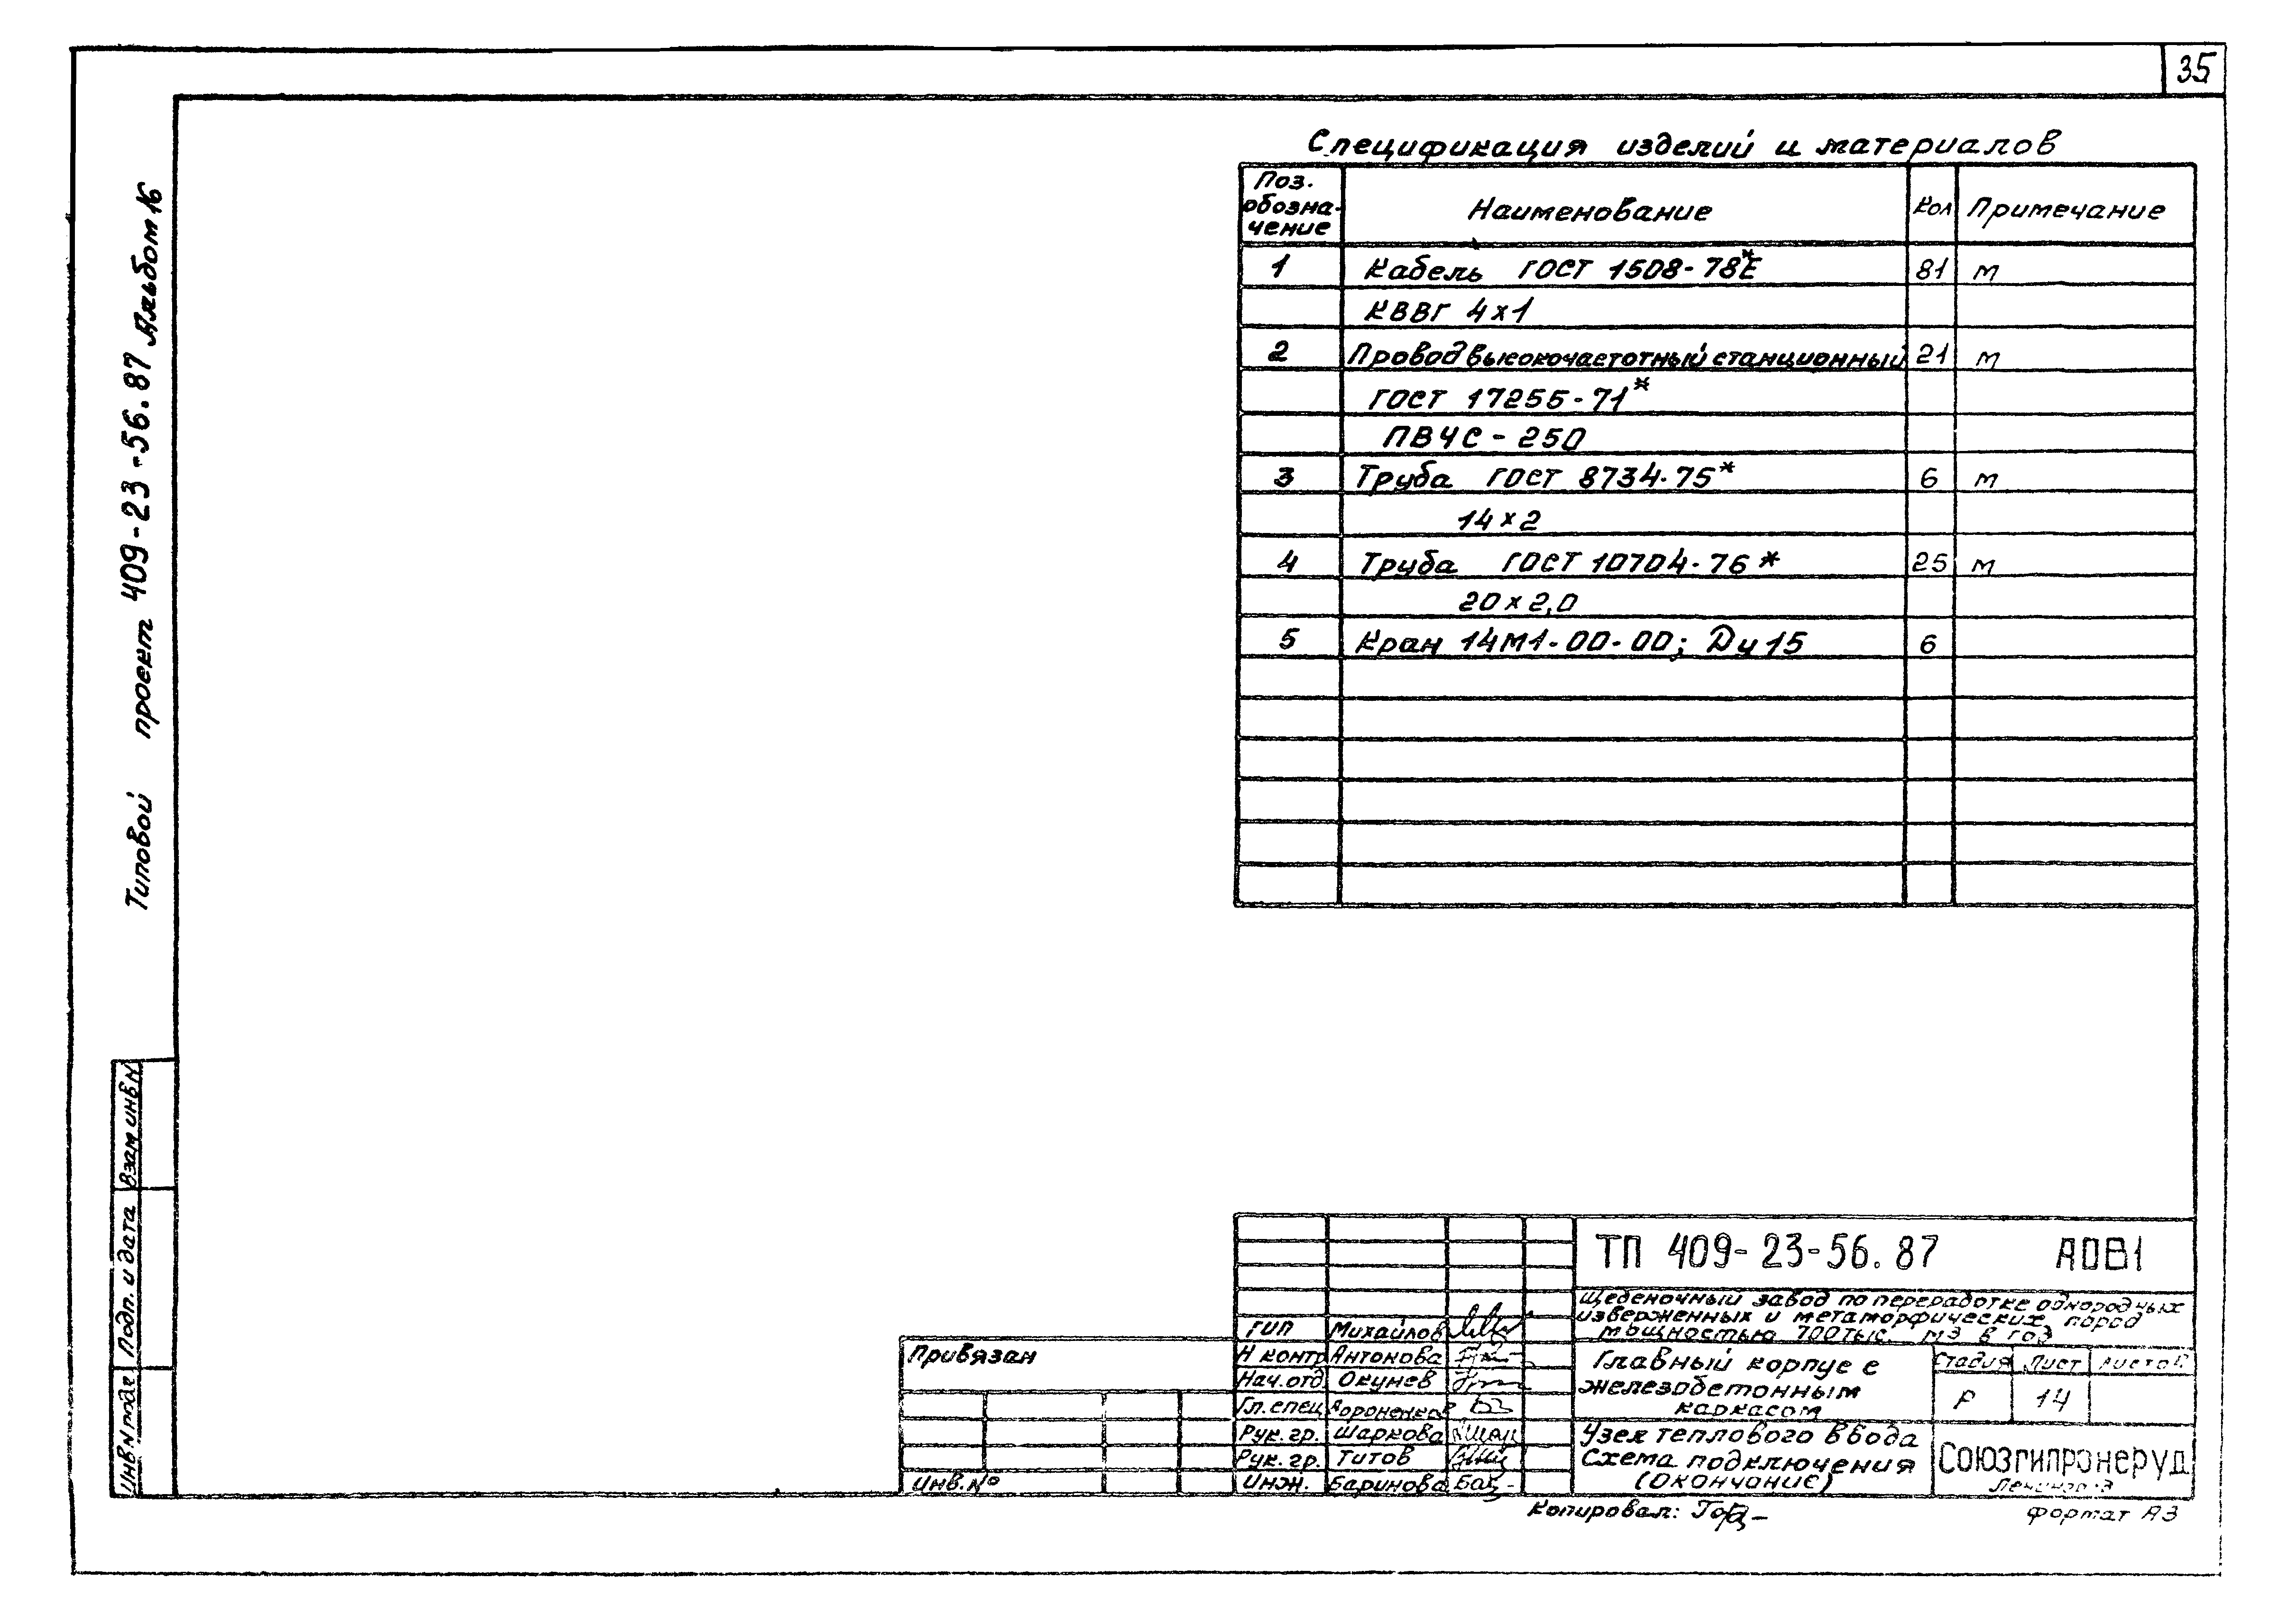 35
Типовой проект 409-23-56.87 Альбом 16
Спецификация изделий и материалов
Поз. обозна-чение Наименование Кол Примечание
1 Кабель ГОСТ 1508-78*Е 81 м
КВВГ 4×1
2 Провод высокочастотный станционный 21 м
ГОСТ 17255-71*
ПВЧС-250
3 Труба ГОСТ 8734-75* 6 м
14×2
4 Труба ГОСТ 10704-76* 25 м
20×2,0
5 Кран 14М1-00-00; Ду 15 6
Взам инв N
Подп. и дата
Инв N подл
Привязан
Инв. N°
ГИП Михайлов
Н контр Антонова
Нач.отд Окунев
Гл.спец Вороненков
Рук.гр. Шаркова
Рук.гр. Титов
Инж. Баринова
ТП 409-23-56.87 АОВ1
Щебеночный завод по переработке однородных
изверженных и метаморфических пород
мощностью 700 тыс. м3 в год
Главный корпус с
железобетонным
каркасом
Стадия Лист Листов
Р 14
Узел теплового ввода
Схема подключения
(Окончание)
Союзгипронеруд
Ленинград
Копировал:
Формат А3